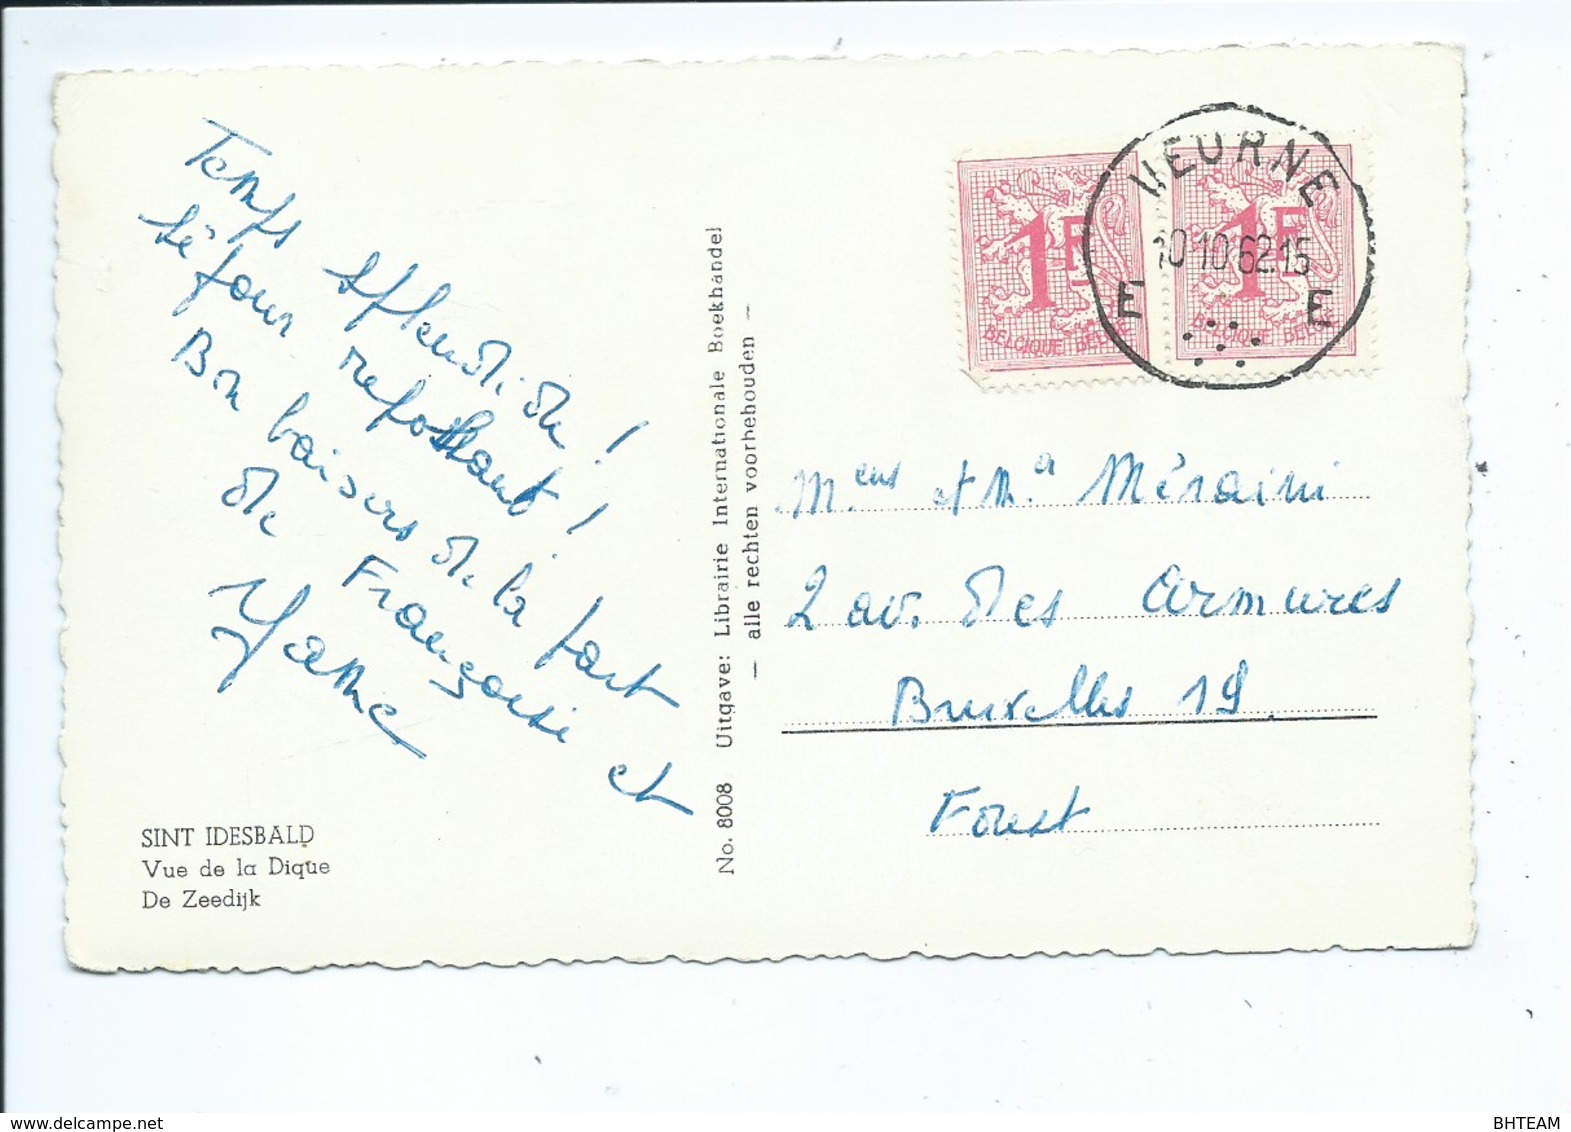 Temps splendide !
Séjour reposant !
Bon baisers de la part
de Françoise et
Yanne
SINT IDESBALD
Vue de la Dique
De Zeedijk
No. 8008 Uitgave: Librairie Internationale Boekhandel
— alle rechten voorbehouden —
1F
BELGIQUE BELGIE
1F
BELGIQUE BELGIE
VEURNE
10 10 62 15
E E
Meur et Ma Méraini
2 av. des Armures
Bruxelles 19.
Forest
www.delcampe.net
BHTEAM